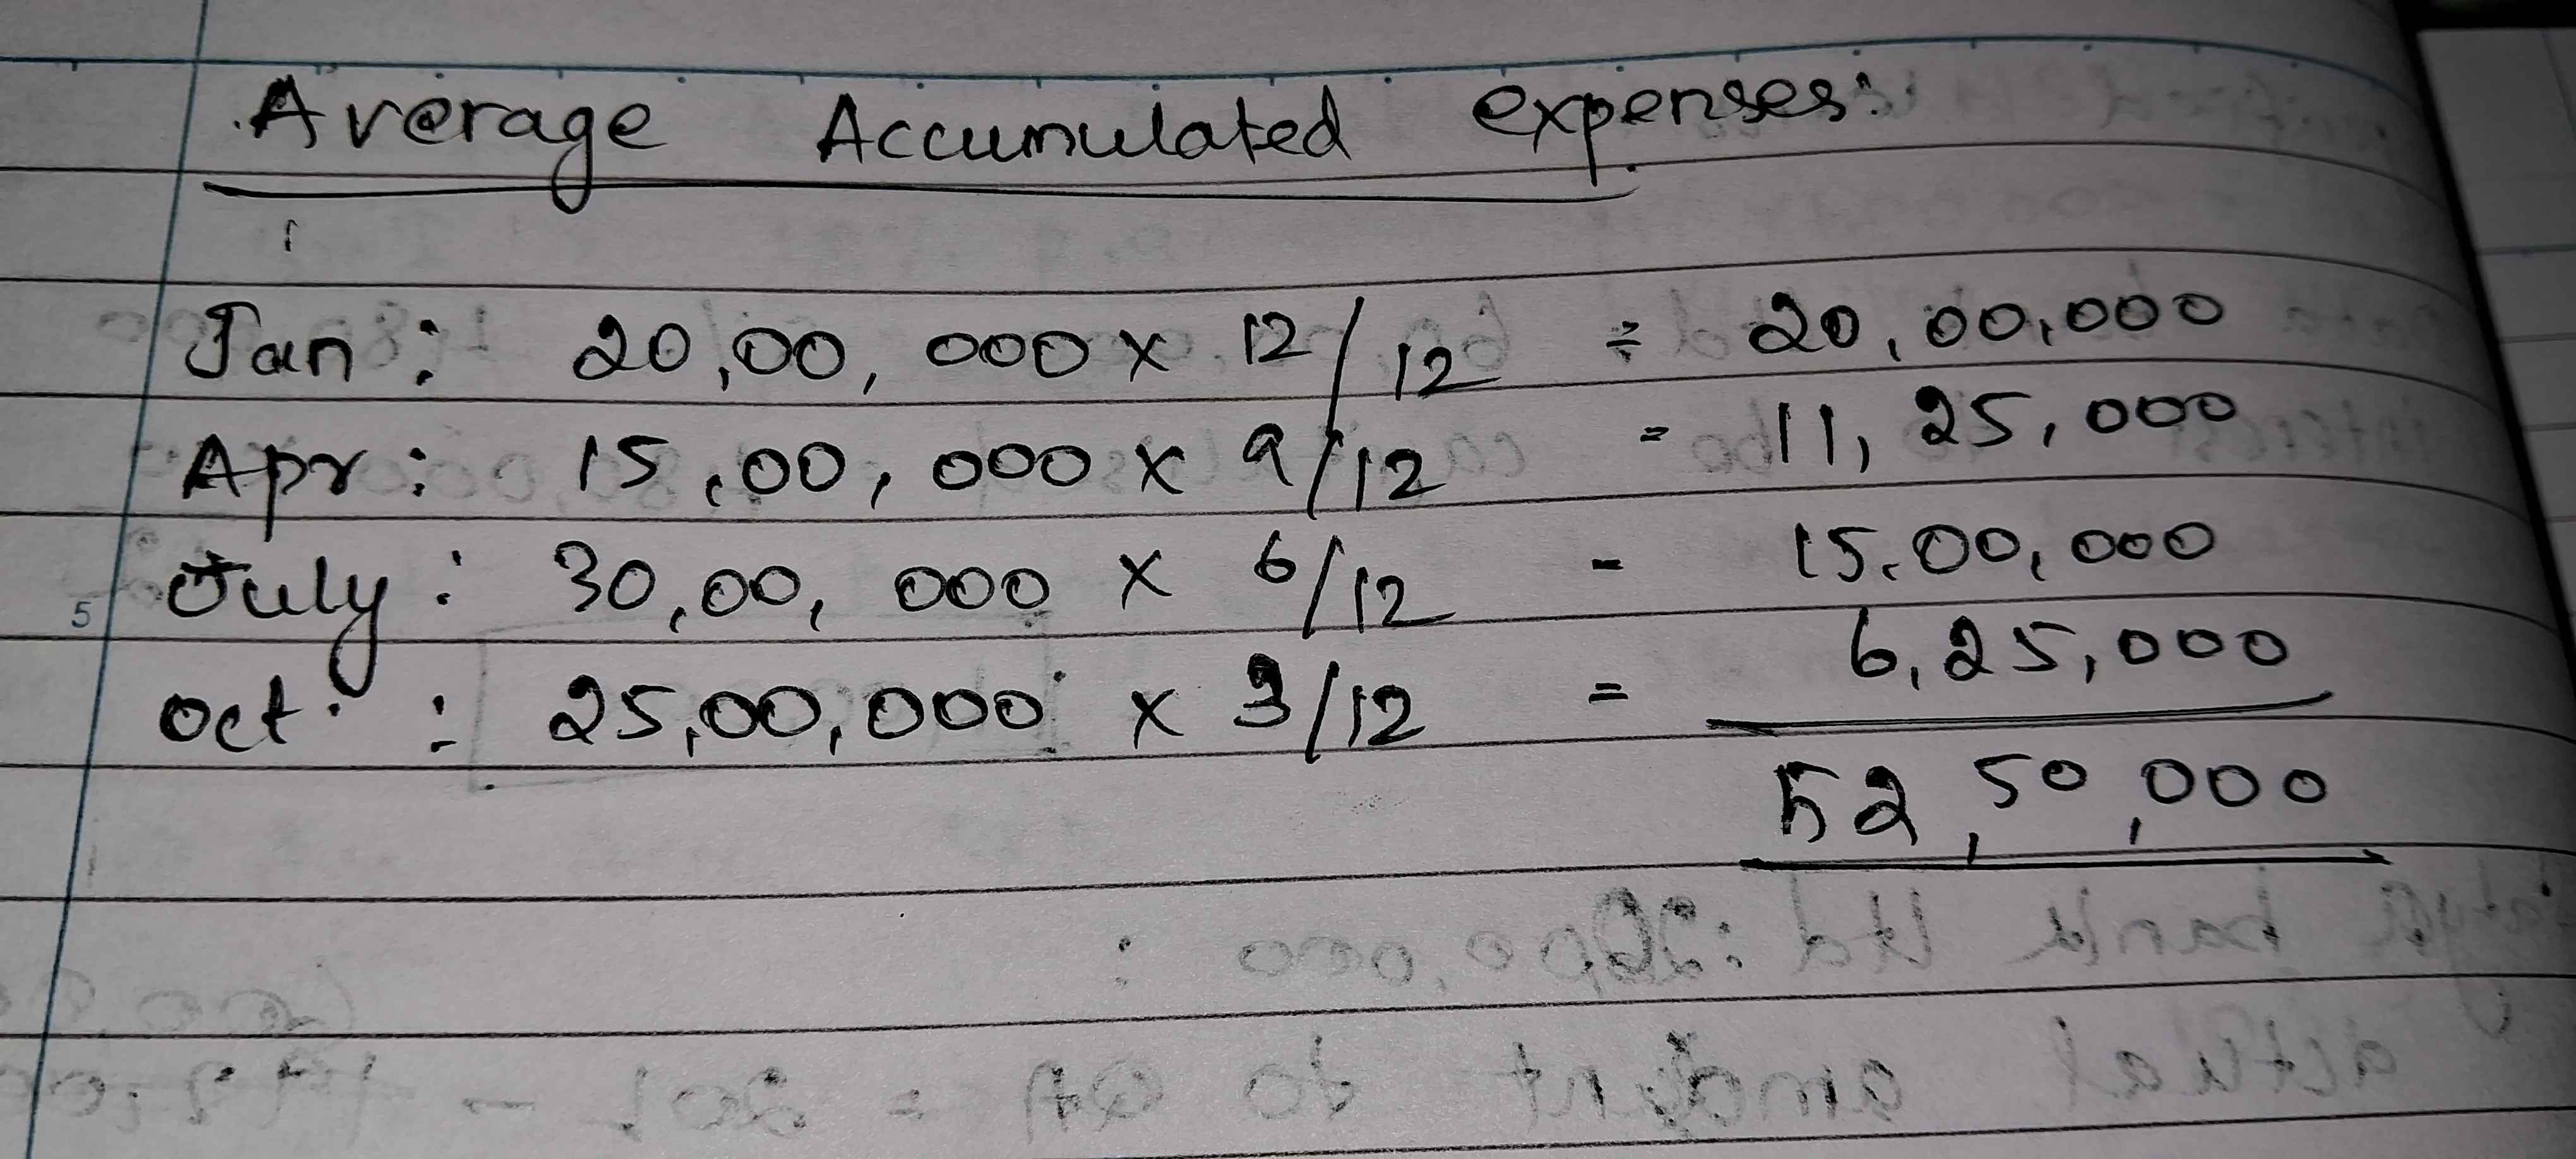 Average Accumulated expenses:
Jan : 20,00,000 x 12/12 = 20,00,000
Apr : 15,00,000 x 9/12 = 11,25,000
July : 30,00,000 x 6/12 - 15,00,000
oct. : 25,00,000 x 3/12 = 6,25,000
5
52,50,000